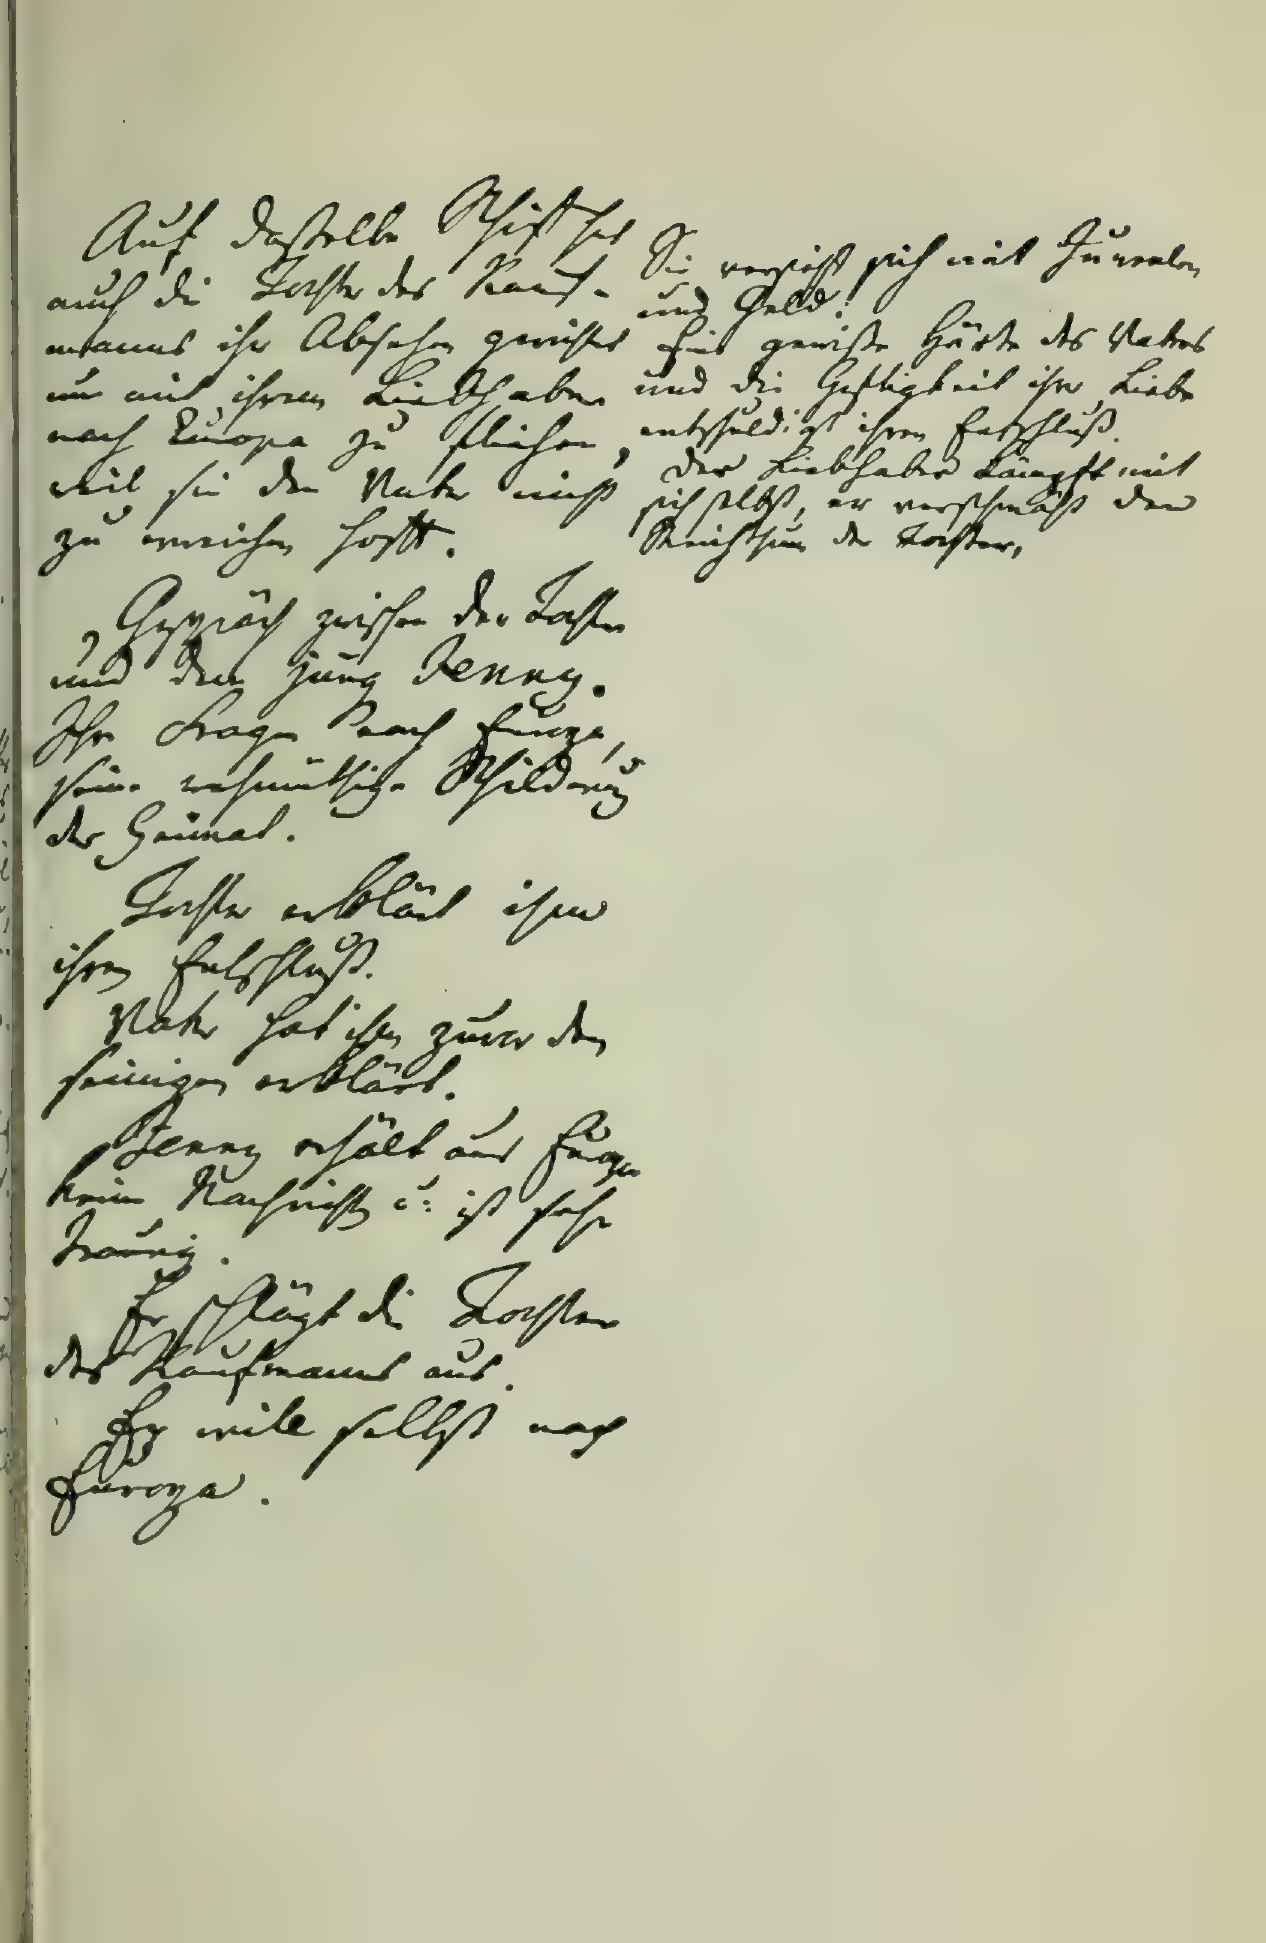 Auf dasselbe Schiff hat
auch die Tochter des Kauf-
manns ihr Absehen gerichtet
um mit ihrem Liebhaber
nach Europa zu fliehen,
weil sie den Vater nicht
zu erweichen hofft.
Gespräch zwischen der Tochter
und dem jung Jenny.
Ihre Fragen nach Europa,
seine wehmüthige Schilderung
der Heimat.
Tochter erklärt ihm
ihren Entschluß.
Vater hat ihm zuvor den
seinigen erklärt.
Jenny erhält aus Europa
keine Nachricht u. ist sehr
traurig.
Er schlägt die Tochter
des Kaufmanns aus.
Er will selbst nach
Europa.
Sie versieht sich mit Juwelen
und Geld.
Eine gewisse Härte des Vaters
und die Heftigkeit ihrer Liebe
entschuldigt ihren Entschluß.
Der Liebhaber kämpft mit
sich selbst, er verschmäht den
Reichthum der Tochter,